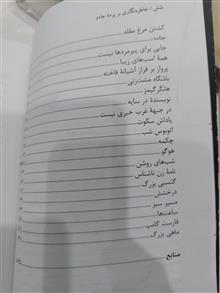 شش / خاطره‌نگاری بر پردهٔ جادو
کشتن مرغ مقلد
جاده
جایی برای پیرمردها نیست
همهٔ اسب‌های زیبا
پرواز بر فراز آشیانهٔ فاخته
باشگاه مشت‌زنی
هانگرگیمز
نویسندهٔ در سایه
در جبههٔ غرب خبری نیست
پاداش سکوت
اتوبوس شب
چکمه
هوگو
شب‌های روشن
نامهٔ زن ناشناس
گتسبی بزرگ
درخشش
مسیر سبز
ساعت‌ها
فارست گامپ
ماهی بزرگ
منابع